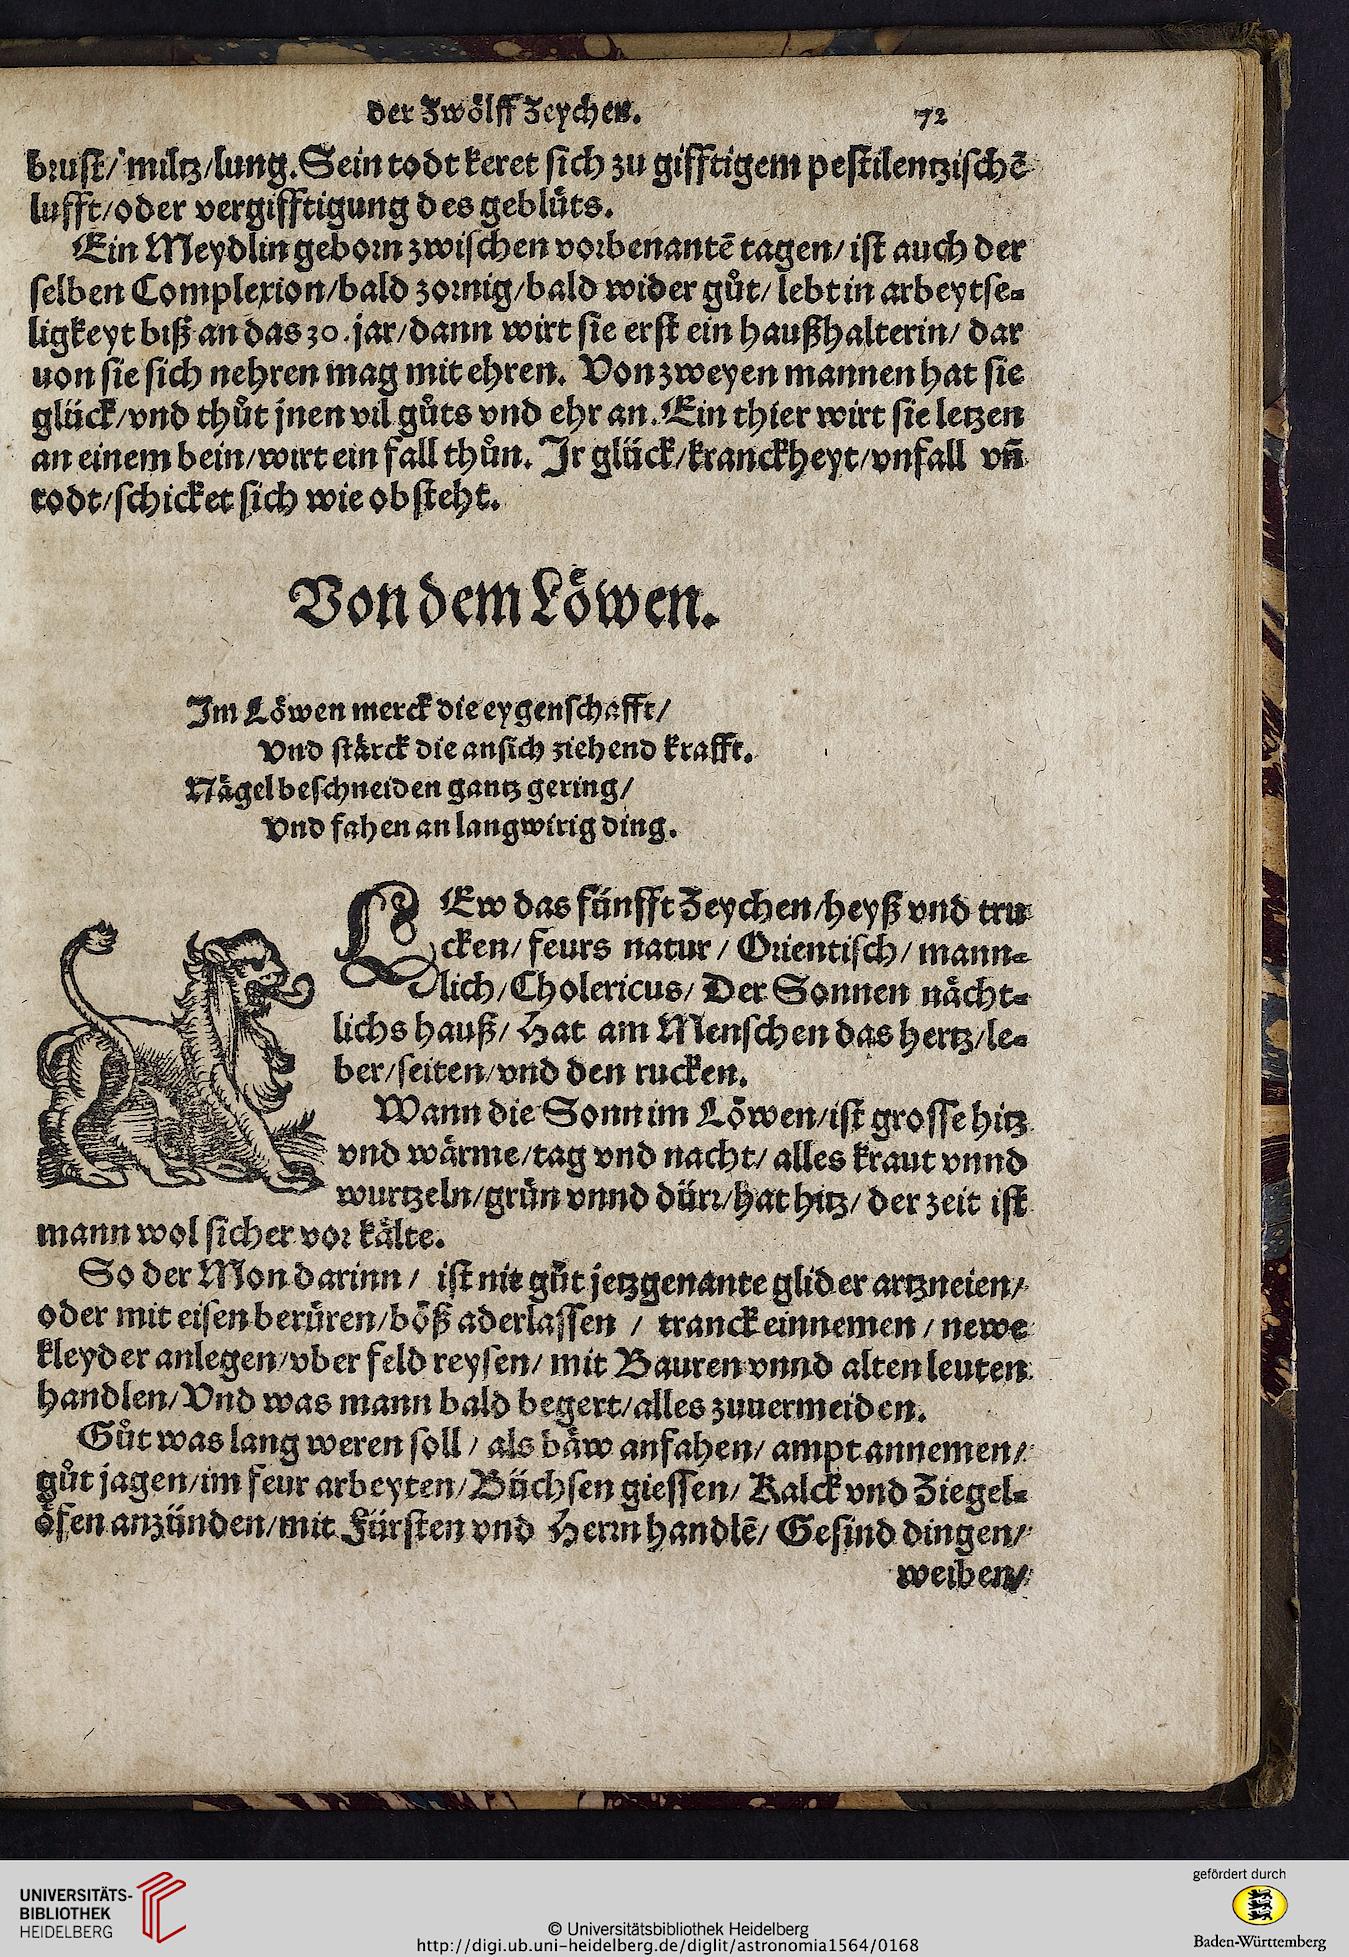 der Zwölff Zeychen. 72
brust/ miltz/lung. Sein todt keret sich zu gifftigem pestilentzischē
lufft/oder vergifftigung des geblüts.
Ein Meydlin geborn zwischen vorbenantē tagen/ ist auch der
selben Complexion/bald zornig/bald wider gůt/ lebt in arbeytse-
ligkeyt biß an das 30. jar/dann wirt sie erst ein haußhalterin/ dar
uon sie sich nehren mag mit ehren. Von zweyen mannen hat sie
glück/vnd thůt jnen vil gůts vnd ehr an. Ein thier wirt sie letzen
an einem bein/wirt ein fall thůn. Jr glück/kranckheyt/vnfall vn̄
todt/schicket sich wie obsteht.
Von dem Löwen.
Im Löwen merck die eygenschafft/
Vnd stärck die ansich ziehend krafft.
Nägel beschneiden gantz gering/
Vnd fahen an langwirig ding.
LEw das fünfft Zeychen/heyß vnd tru
cken/ feurs natur / Orientisch/ mann-
lich/Cholericus/ Der Sonnen nächt-
lichs hauß/ Hat am Menschen das hertz/le-
ber/seiten/vnd den rucken.
Wann die Sonn im Löwen/ist grosse hitz
vnd wärme/tag vnd nacht/ alles kraut vnnd
wurtzeln/grün vnnd dürr/hat hitz/ der zeit ist
mann wol sicher vor kälte.
So der Mon darinn / ist nit gůt jetzgenante glider artzneien/
oder mit eisen berüren/böß aderlassen / tranck einnemen / newe
kleyder anlegen/vber feld reysen/ mit Bauren vnnd alten leuten
handlen/Vnd was mann bald begert/alles zuuermeiden.
Gůt was lang weren soll / als bäw anfahen/ ampt annemen/
gůt jagen/im feur arbeyten/Büchsen giessen/ Kalck vnd Ziegel-
öfen anzünden/mit Fürsten vnd Herrn handlē/ Gesind dingen/
weiben/
UNIVERSITÄTS-
BIBLIOTHEK
HEIDELBERG
© Universitätsbibliothek Heidelberg
http://digi.ub.uni-heidelberg.de/diglit/astronomia1564/0168
gefördert durch
Baden-Württemberg